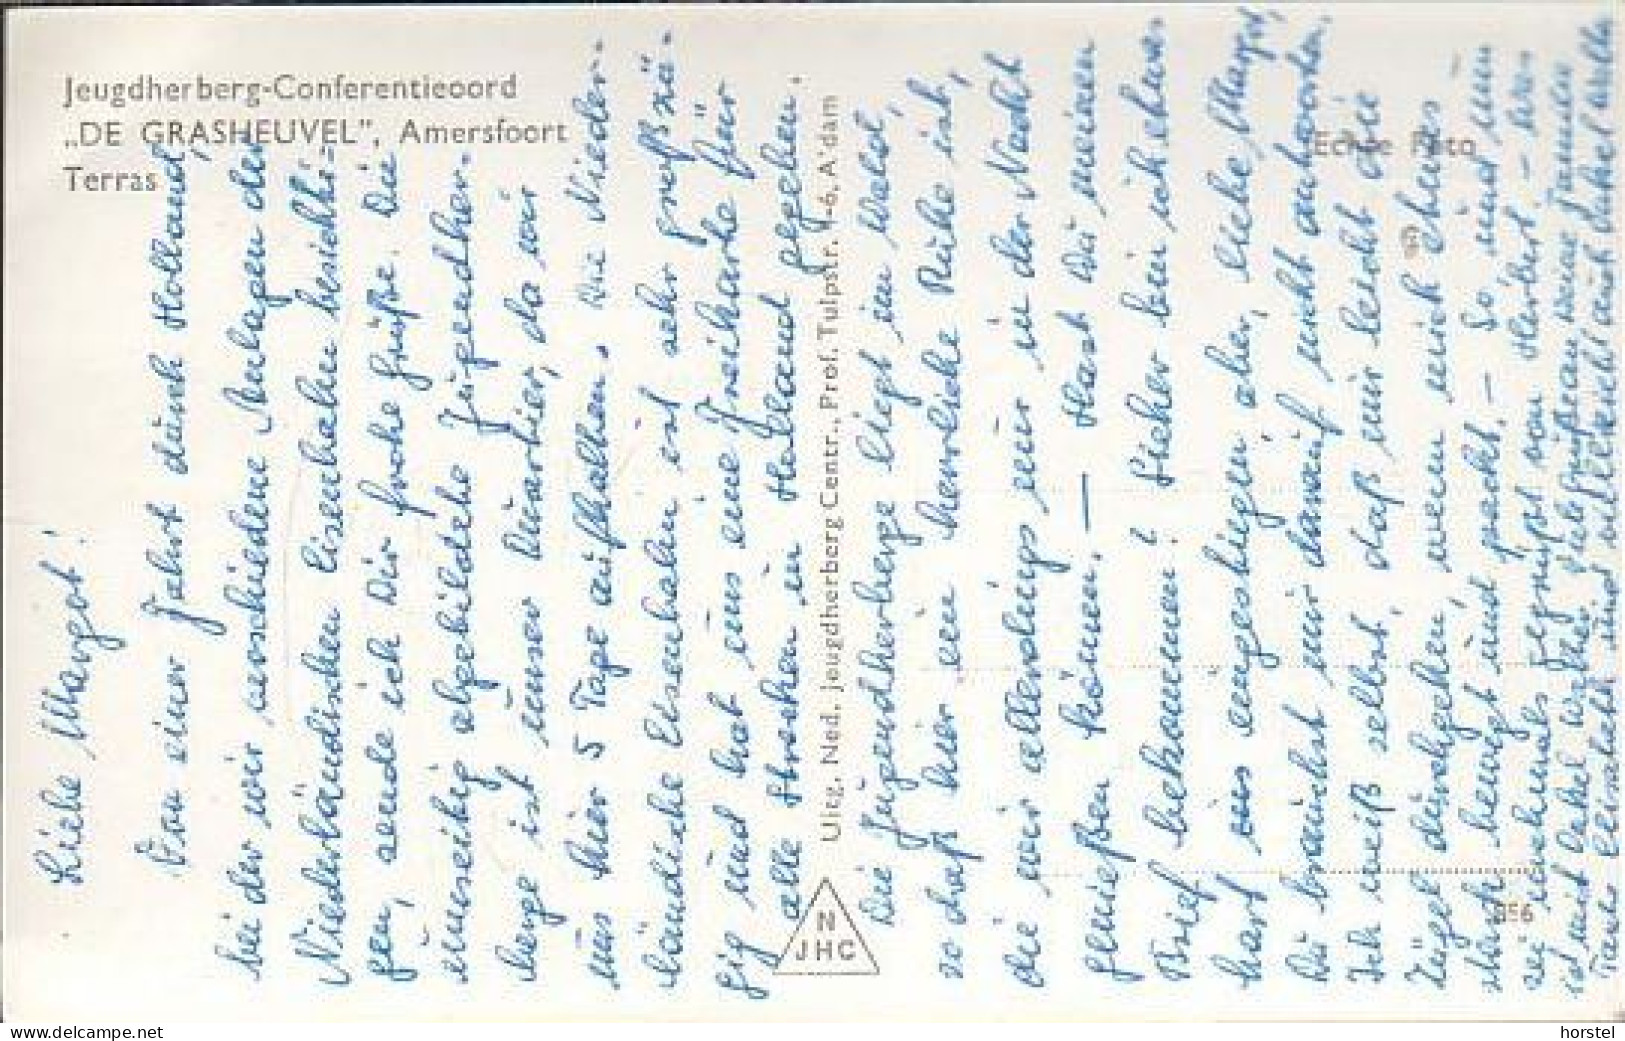 Jeugdherberg-Conferentieoord
„DE GRASHEUVEL", Amersfoort
Terras
Echte Foto
Uitg. Ned. Jeugdherberg Centr., Prof. Tulpstr. 2-6, A'dam
N
JHC
Liebe Margot!
Von einer Fahrt durch Holland,
bei der wir verschiedene Anlagen der
Niederländischen Eisenbahn besichti-
gen, sende ich Dir frohe Grüße. Die
umseitig abgebildete Jugendher-
berge ist unser Quartier, da wir
uns hier 5 Tage aufhalten. Die Nieder-
ländische Eisenbahn ist sehr großzü-
gig und hat uns eine Freikarte für
alle Strecken in Holland gegeben.
Die Jugendherberge liegt im Wald,
so daß hier eine herrliche Ruhe ist,
die wir allerdings nur in der Nacht
genießen können. — Hast Du meinen
Brief bekommen? Sicher bin ich etwas
hart ins eingestiegen aber, liebe Margot,
Du brauchst mir darauf nicht antworten.
Ich weiß selbst, daß mir leicht die
Zügel durchgehen, wenn mich etwas
stark bewegt und packt. — So und nun
sei nochmals gegrüßt von Herbert. —